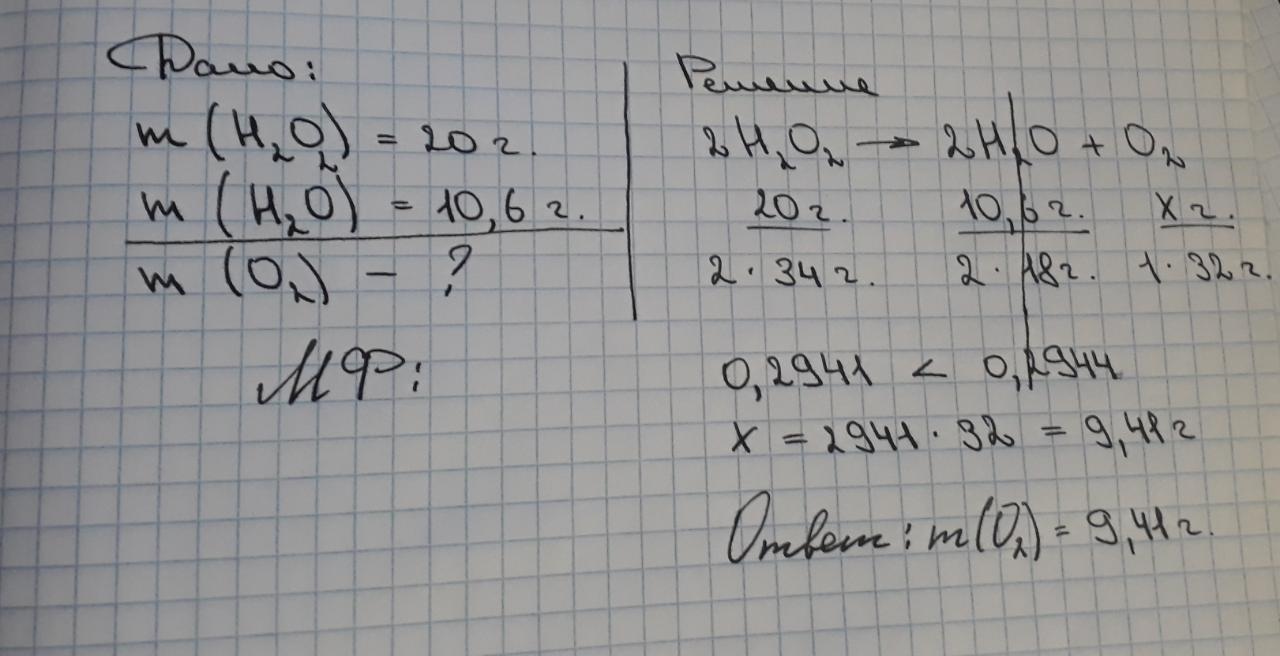 Дано:
m (H₂O₂) = 20 г.
m (H₂O) = 10,6 г.
m (O₂) – ?
МФ:
Решение
2H₂O₂ → 2H₂O + O₂
20 г. 10,6 г. x г.
2 · 34 г. 2 · 18 г. 1 · 32 г.
0,2941 < 0,2944
x = 2941 · 32 = 9,41 г
Ответ: m(O₂) = 9,41 г.